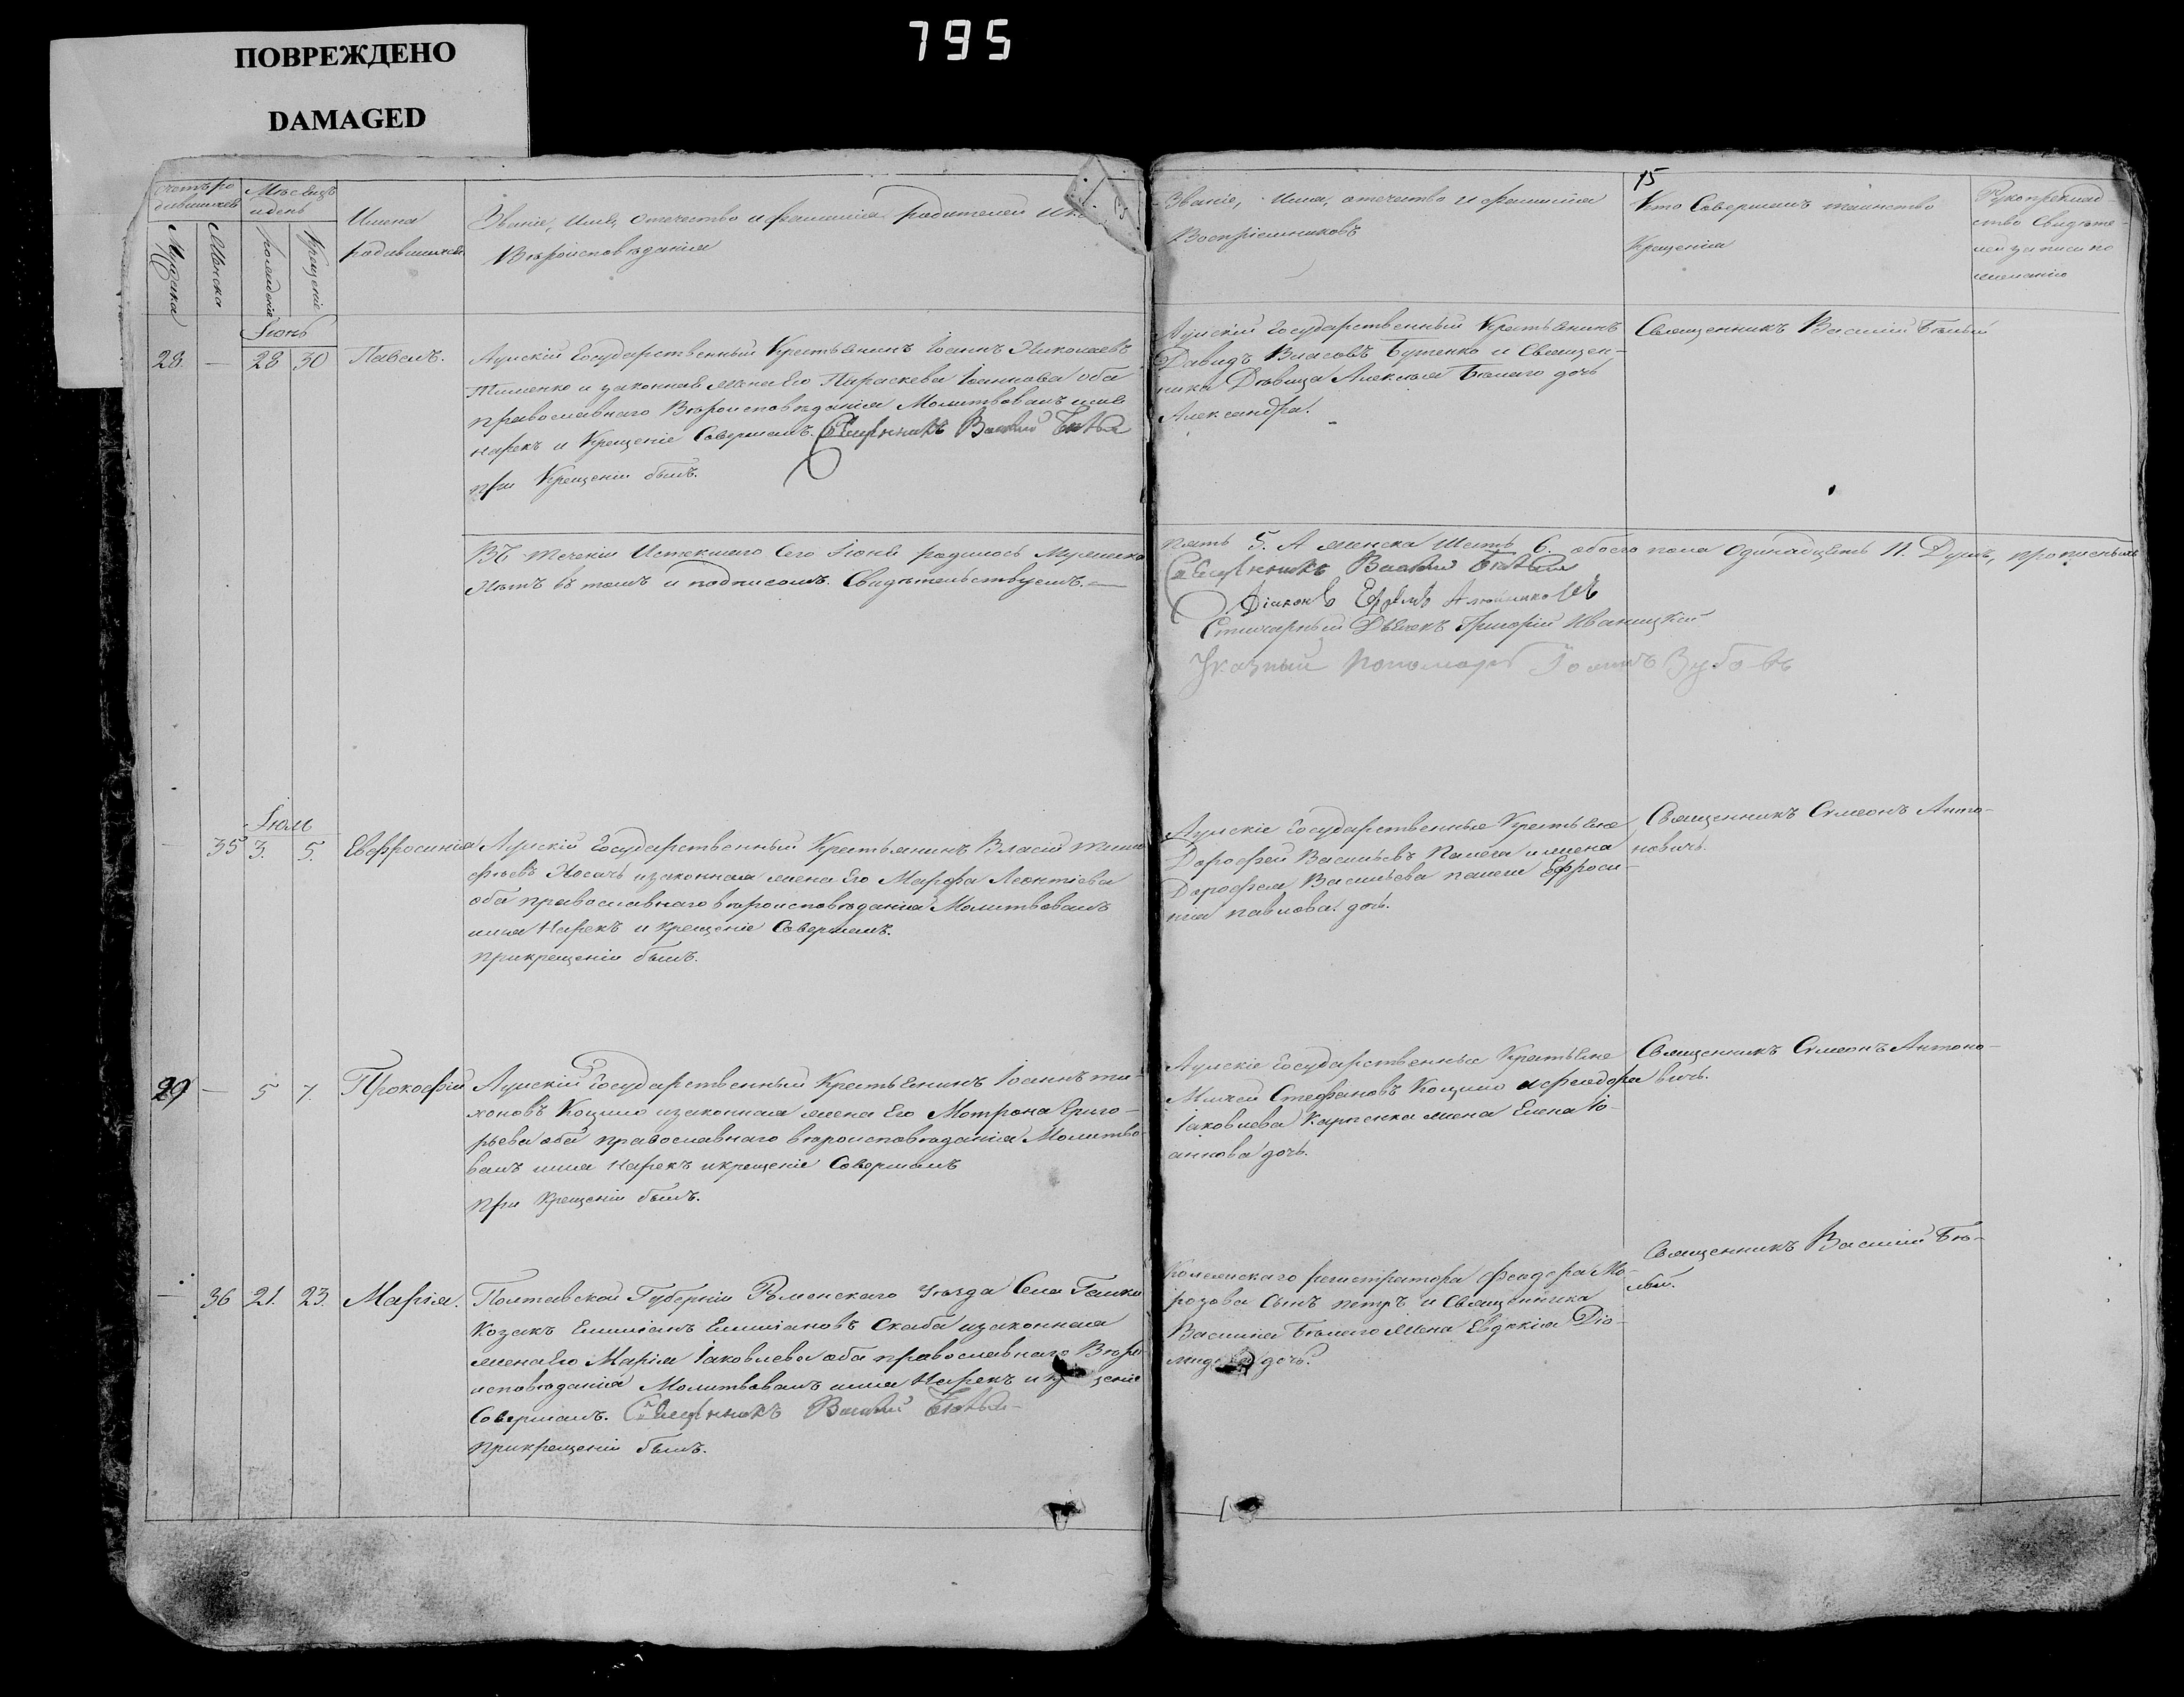 ПОВРЕЖДЕНО
DAMAGED
795
Счетъ ро
дившихся
Мѣсяцъ
и день
Мужска
Женска
рожденія
Крещеніе
Имена
родившихся
Званіе, Имя, отечество и фамилія родителей и
Вѣроисповѣданія
Званіе, Имя, отечество и фамилія
Воспріемниковъ
15
Кто Совершалъ таинство
Крещенія
Рукоприклад-
ство Свидѣте-
лей записи по
желанію
Іюнь
28. — 28 30 Павелъ.
Государственный Крестьянинъ Іоаннъ Николаевъ
Тименко и законная жена Его Параскева Іоаннова оба
православнаго Вѣроисповѣданія Молитвовалъ имя
нарекъ и Крещеніе Совершалъ. Священникъ Василій Бѣлый
при Крещеніи былъ.
Государственный Крестьянинъ
Давидъ Власовъ Бутенко и Священ-
ника Дѣвица Алексѣя Бѣлаго дочь
Александра.
Священникъ Василій Бѣлый
Въ теченіи Истекшаго Сего Іюня родилось Мужска
пять 5. А женска Шесть 6. обоего пола Одинадцать 11. Душъ,
въ томъ и подписомъ Свидѣтельствуемъ.
Священникъ Василій Бѣлый
Діаконъ
Стихарный Дьячекъ Григорій Иваницкій
Указный Пономарь Іоаннъ Зубовъ
Іюль
— 35 3. 5. Евфросинія
Государственный Крестьянинъ Власій Тимо
фѣевъ Носачь и законная жена Его Марфа Леонтіева
оба православнаго вѣроисповѣданія Молитвовалъ
имя Нарекъ и крещеніе Совершалъ.
при крещеніи былъ.
Государственные Крестьяне
Дорофей Васильевъ и жена
Дорофея Васильева Ефроси-
нія павлова дочь.
Священникъ Сѵмеонъ Анто-
новичь.
29 — 5 7. Прокофій
Государственный Крестьянинъ Іоаннъ ти-
хоновъ Коцило и законная жена Его Мотрона Григо-
рьева оба православнаго вѣроисповѣданія Молитво-
валъ имя Нарекъ и крещеніе Совершалъ
при Крещеніи былъ.
Государственные Крестьяне
Михей Стефановъ Коцило и феодора
Іаковлева Карпенка жена Елена Іо-
аннова дочь.
Священникъ Сѵмеонъ Антоно-
вичь.
— 36 21. 23. Марія.
Полтавской Губерніи Роменскаго Уѣзда Села
Козакъ Емиліанъ Емиліановъ Скаба и законная
жена Его Марія Іаковлева оба православнаго Вѣро
исповѣданія Молитвовалъ имя Нарекъ и
Совершалъ. Священникъ Василій Бѣлый
при крещеніи былъ.
Колежскаго регистратора феодора Мо-
розова Сынъ петръ и Священника
Василія Бѣлаго жена Евдокія Діо-
дочь.
Священникъ Василій Бѣ-
лый.